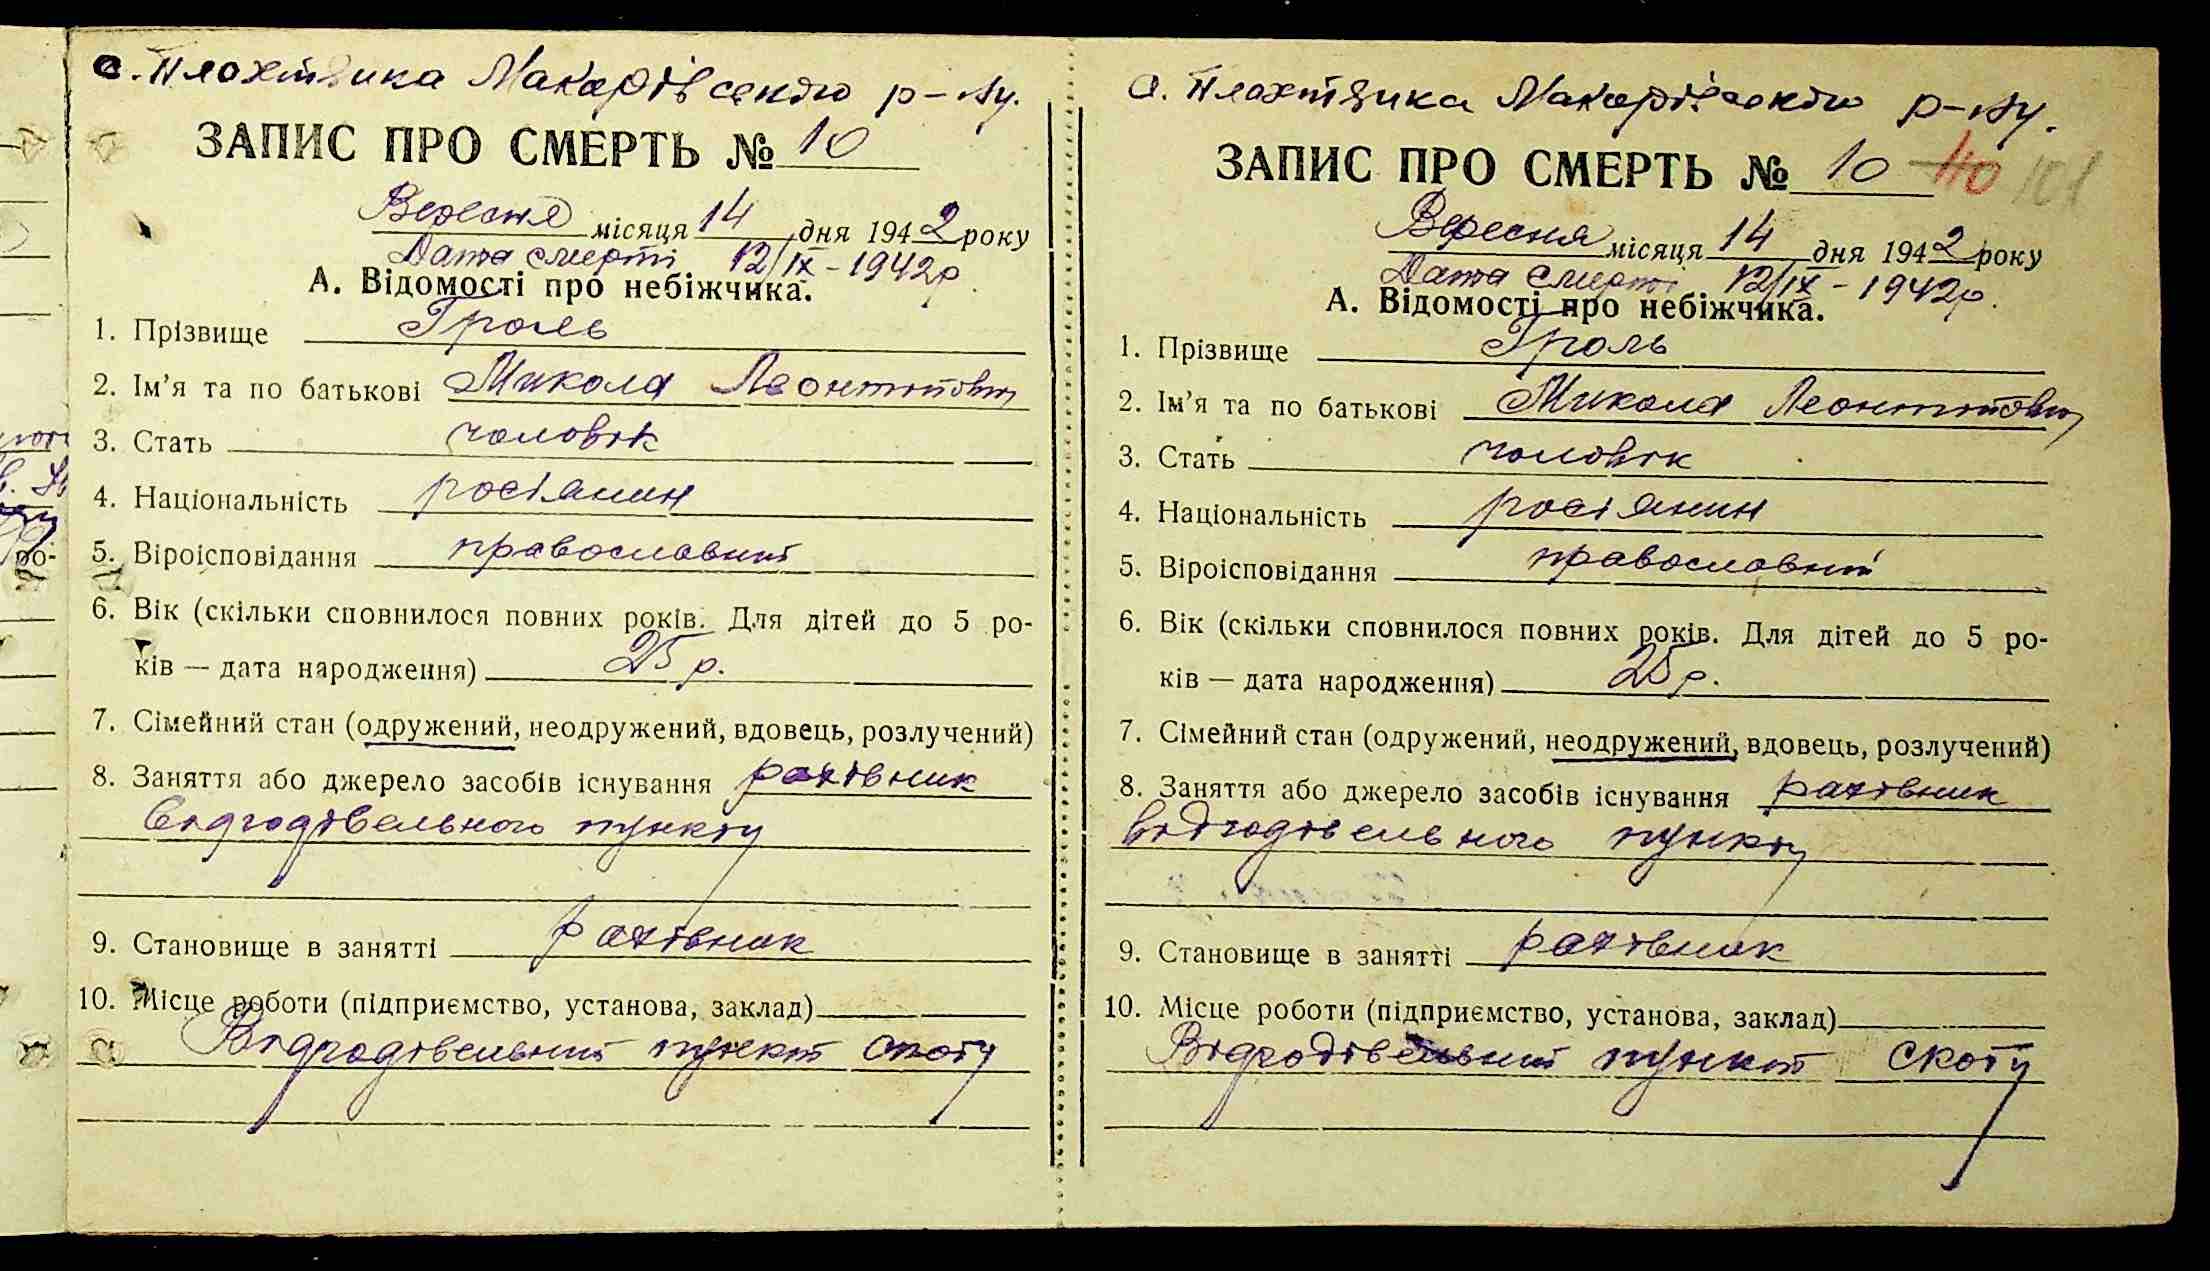 с. Плахтянка Макарівського р-ну.
ЗАПИС ПРО СМЕРТЬ № 10
Вересня місяця 14 дня 1942 року
Дата смерті 12/IX - 1942р.
А. Відомості про небіжчика.
1. Прізвище Гроль
2. Ім’я та по батькові Микола Леонтійович
3. Стать чоловік
4. Національність росіянин
5. Віроісповідання православний
6. Вік (скільки сповнилося повних років. Для дітей до 5 ро-
ків — дата народження) 25 р.
7. Сімейний стан (одружений, неодружений, вдовець, розлучений)
8. Заняття або джерело засобів існування рахівник
відгодівельного пункту
9. Становище в занятті рахівник
10. Місце роботи (підприємство, установа, заклад)
Відгодівельний пункт скоту
с. Плахтянка Макарівського р-ну.
ЗАПИС ПРО СМЕРТЬ № 10 110 101
Вересня місяця 14 дня 1942 року
Дата смерті 12/IX - 1942р.
А. Відомості про небіжчика.
1. Прізвище Гроль
2. Ім’я та по батькові Микола Леонтійович
3. Стать чоловік
4. Національність росіянин
5. Віроісповідання православний
6. Вік (скільки сповнилося повних років. Для дітей до 5 ро-
ків — дата народження) 25 р.
7. Сімейний стан (одружений, неодружений, вдовець, розлучений)
8. Заняття або джерело засобів існування рахівник
відгодівельного пункту
9. Становище в занятті рахівник
10. Місце роботи (підприємство, установа, заклад)
Відгодівельний пункт скоту